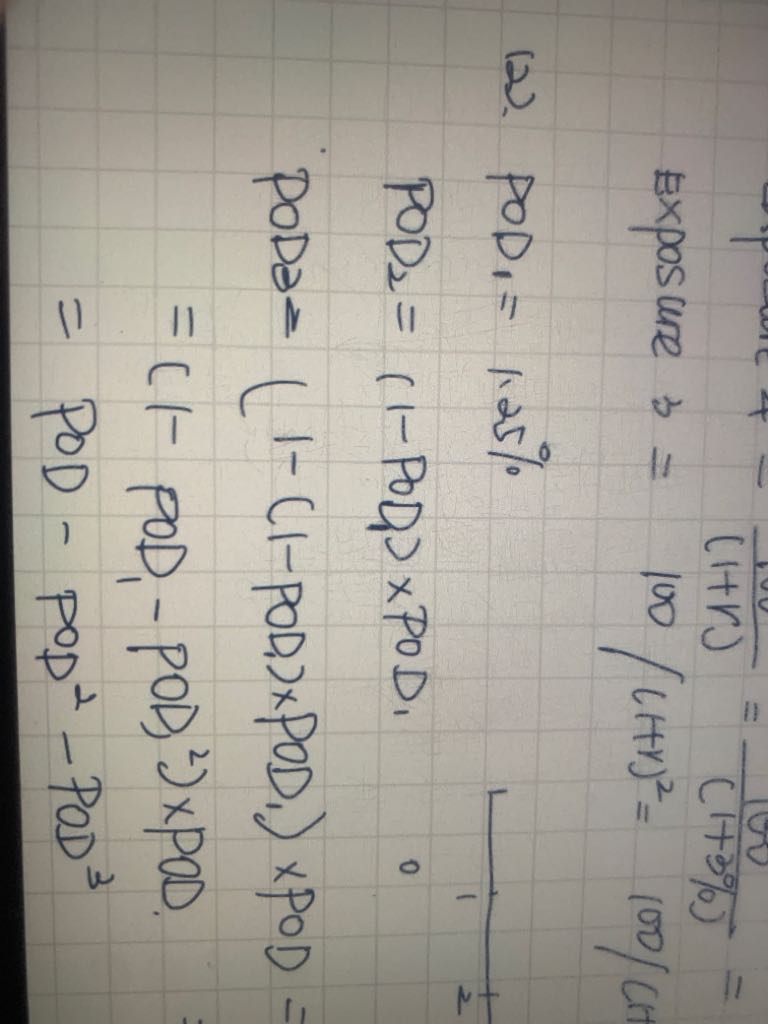 Exposure 4 = 100/(1+r) = 100/(1+3%) =
Exposure 3 = 100/(1+r)² = 100/(1+
(2). POD₁ = 1.25%
1 2
POD₂ = (1-POD₁)×POD₁
0
POD3 = (1-(1-POD₁)×POD₁)×POD =
= (1-POD₁-POD₁²)×POD.
= POD - POD² - POD³